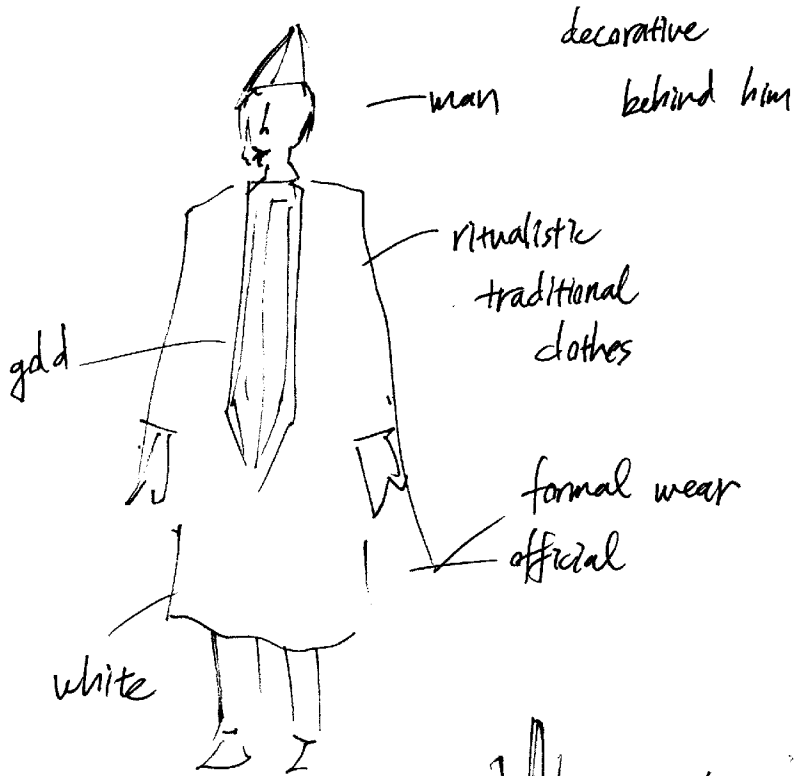 decorative
man
behind him
ritualistic
traditional
clothes
gold
formal wear
official
white